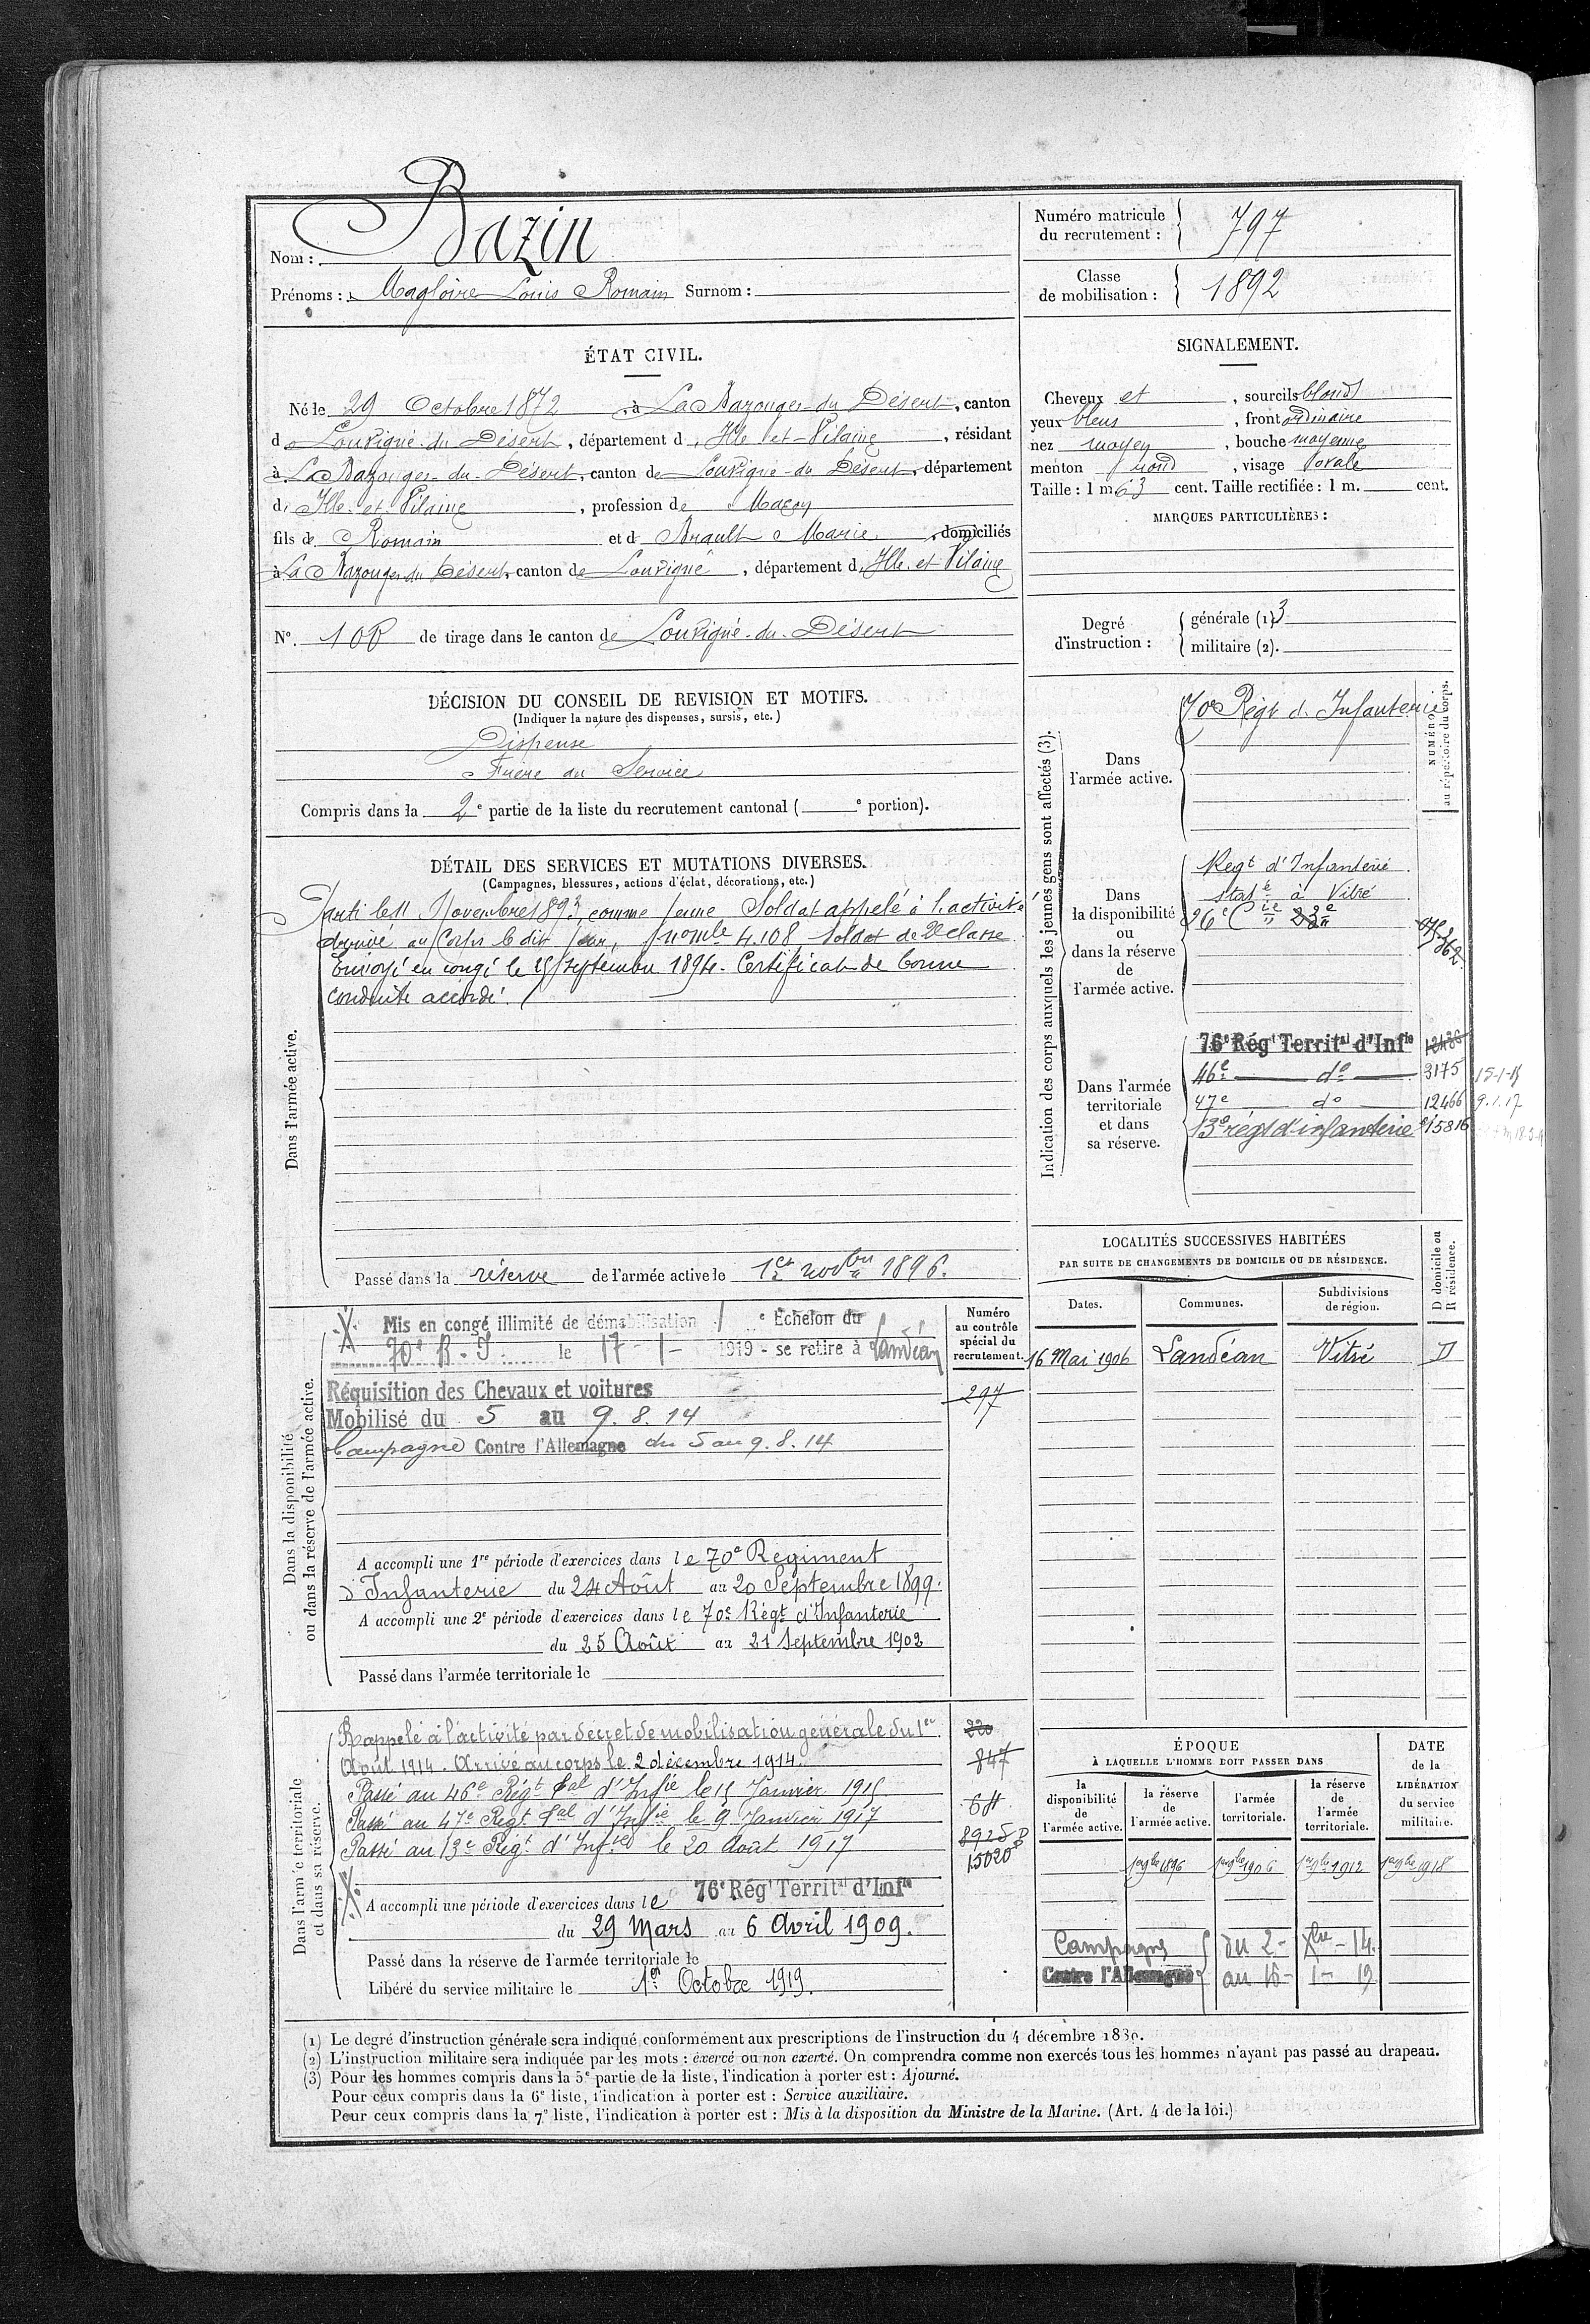 Nom : Bazin
Prénoms : Magloire Louis Romain Surnom :
Numéro matricule du recrutement : 797
Classe de mobilisation : 1892
ÉTAT CIVIL.
Né le 29 Octobre 1872, à La Bazouges-du Désert, canton
d Louvigné-du Désert, département d'Ille-et-Vilaine, résidant
à La Bazouges-du-Désert, canton de Louvigné-du Désert, département
d'Ille-et-Vilaine, profession de Maçon
fils de Romain et d Brault Marie, domiciliés
à La Bazouges du Désert, canton de Louvigné, département d'Ille-et-Vilaine
SIGNALEMENT.
Cheveux et, sourcils blonds
yeux bleus, front ordinaire
nez moyen, bouche moyenne
menton rond, visage ovale
Taille : 1 m 63 cent. Taille rectifiée : 1 m. cent.
MARQUES PARTICULIÈRES :
No. 108 de tirage dans le canton de Louvigné-du-Désert
Degré d'instruction :
générale (1) 3
militaire (2).
DÉCISION DU CONSEIL DE REVISION ET MOTIFS.
(Indiquer la nature des dispenses, sursis, etc.)
Dispense
Frère au Service
Compris dans la 2e partie de la liste du recrutement cantonal ( e portion).
DÉTAIL DES SERVICES ET MUTATIONS DIVERSES.
(Campagnes, blessures, actions d'éclat, décorations, etc.)
Dans l'armée active.
Parti le 11 Novembre 1893, comme jeune Soldat appelé à l'activité
Arrivé au Corps le dit jour, no mle 4.108 Soldat de 2e classe
Envoyé en congé le 25 septembre 1894. Certificat de bonne
conduite accordé.
Passé dans la réserve de l'armée active le 1er novbre 1896.
Indication des corps auxquels les jeunes gens sont affectés (3).
NUMÉRO au répertoire du corps.
Dans l'armée active.
70e Régt d'Infanterie
Dans la disponibilité ou dans la réserve de l'armée active.
Regt d'Infanterie
stat é à Vitré
26e Cie " 23e
Dans l'armée territoriale et dans sa réserve.
76e Régt Territal d'Infie
46e do 3175 15-1-15
47e do 12466 9.1.17
13e régt d'infanterie 15816
LOCALITÉS SUCCESSIVES HABITÉES
PAR SUITE DE CHANGEMENTS DE DOMICILE OU DE RÉSIDENCE.
D domicile ou R résidence.
Dates. Communes. Subdivisions de région.
16 Mai 1906 Landéan Vitré D
Dans la disponibilité ou dans la réserve de l'armée active.
Numéro au contrôle spécial du recrutement.
Mis en congé illimité de démobilisation e Echelon du
70e R.I. le 17-1-1919 - se retire à Landéan
Réquisition des Chevaux et voitures 297
Mobilisé du 5 au 9.8.14
Campagne Contre l'Allemagne du 5 au 9.8.14
A accompli une 1re période d'exercices dans le 70e Regiment
d'Infanterie du 24 Août au 20 Septembre 1899.
A accompli une 2e période d'exercices dans le 70e Régt d'Infanterie
du 25 Août au 21 Septembre 1902
Passé dans l'armée territoriale le
Dans l'armée territoriale et dans sa réserve.
Rappelé à l'activité par décret de mobilisation générale du 1er
Août 1914. Arrivé au corps le 2 décembre 1914. 847
Passé au 46e Régt Tal d'Infie le 15 Janvier 1915
Passé au 47e Regt Tal d'Infie le 9 Janvier 1917
Passé au 13e Régt d'Infie le 20 Août 1917 15020
A accompli une période d'exercices dans le 76e Régt Territal d'Infie
du 29 Mars au 6 Avril 1909.
Passé dans la réserve de l'armée territoriale le
Libéré du service militaire le 1er Octobre 1919.
ÉPOQUE
À LAQUELLE L'HOMME DOIT PASSER DANS
DATE de la LIBÉRATION du service militaire.
la disponibilité de l'armée active.
la réserve de l'armée active.
l'armée territoriale.
la réserve de l'armée territoriale.
1er 9bre 1896 1er 9bre 1906 1er 9bre 1912 1er 9bre 1918
Campagne du 2- Xbre - 14.
Contre l'Allemagne au 16- 1- 19
(1) Le degré d'instruction générale sera indiqué conformément aux prescriptions de l'instruction du 4 décembre 1889.
(2) L'instruction militaire sera indiquée par les mots : exercé ou non exercé. On comprendra comme non exercés tous les hommes n'ayant pas passé au drapeau.
(3) Pour les hommes compris dans la 5e partie de la liste, l'indication à porter est : Ajourné.
Pour ceux compris dans la 6e liste, l'indication à porter est : Service auxiliaire.
Pour ceux compris dans la 7e liste, l'indication à porter est : Mis à la disposition du Ministre de la Marine. (Art. 4 de la loi.)